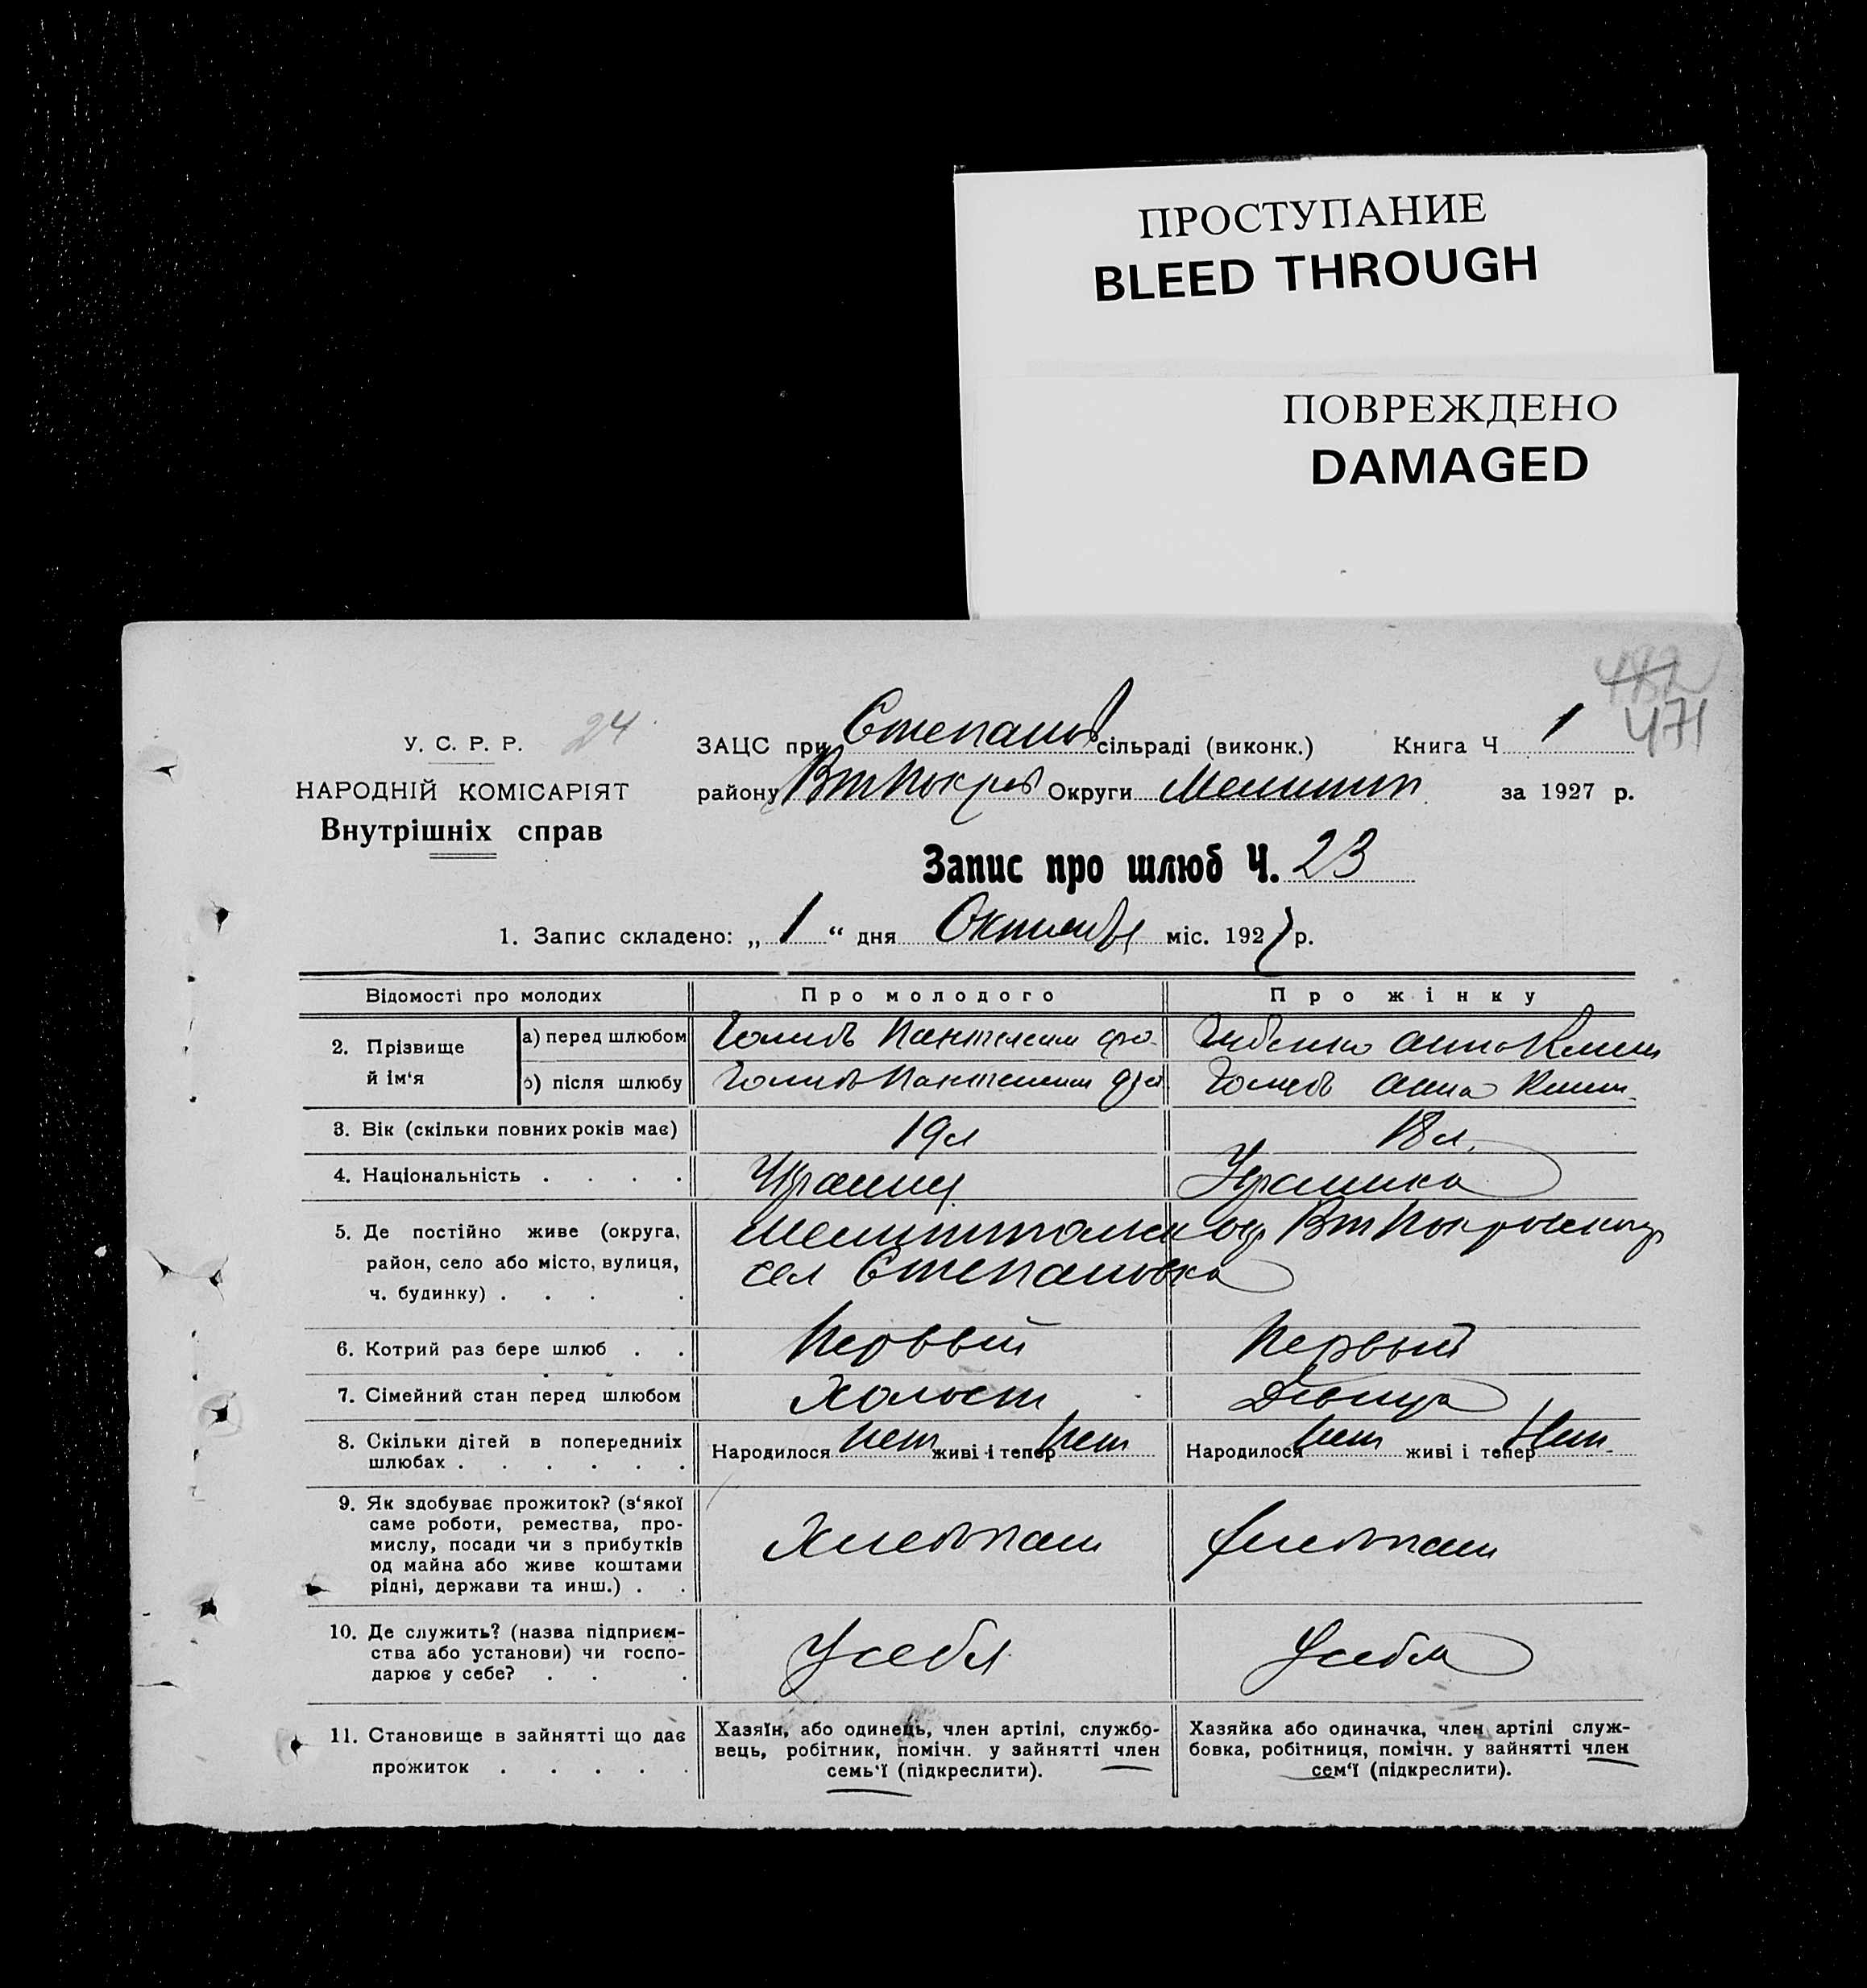 ПРОСТУПАНИЕ
BLEED THROUGH
ПОВРЕЖДЕНО
DAMAGED
471
У. С. Р. Р.
24
ЗАЦС при Степанов сільраді (виконк.) Книга Ч 1
НАРОДНІЙ КОМІСАРІЯТ
району ВтПокров Округи Мелитоп за 1927 р.
Внутрішніх справ
Запис про шлюб Ч. 23
1. Запис складено: „ 1 “ дня Октября міс. 1927 р.
Відомості про молодих Про молодого Про жінку
2. Прізвище й ім‘я
а) перед шлюбом Пантелеим Анна Клим
б) після шлюбу Пантелеим Анна Клим
3. Вік (скільки повних років має) 19 л 18 л.
4. Національність . . . . Украинец Украинка
5. Де постійно живе (округа, район, село або місто, вулиця, ч. будинку) . . . .
ВтПокровского р
сел Степановка
6. Котрий раз бере шлюб . . Первый Первый
7. Сімейний стан перед шлюбом Холост Девица
8. Скільки дітей в попередниіх шлюбах . . . . . .
Народилося нет живі і тепер нет Народилося нет живі і тепер Нет
9. Як здобуває прожиток? (з‘якої
саме роботи, ремества, про-
мислу, посади чи з прибутків
од майна або живе коштами
рідні, держави та инш.) . .
Хлебпаш Хлебпаш
10. Де служить? (назва підприєм-
ства або установи) чи госпо-
дарює у себе? . . .
У себя У себя
11. Становище в зайнятті що дає
прожиток . . . . .
Хазяїн, або одинець, член артілі, службо-
вець, робітник, помічн. у зайнятті член
семь‘ї (підкреслити).
Хазяйка або одиначка, член артілі служ-
бовка, робітниця, помічн. у зайнятті член
сем‘ї (підкреслити).